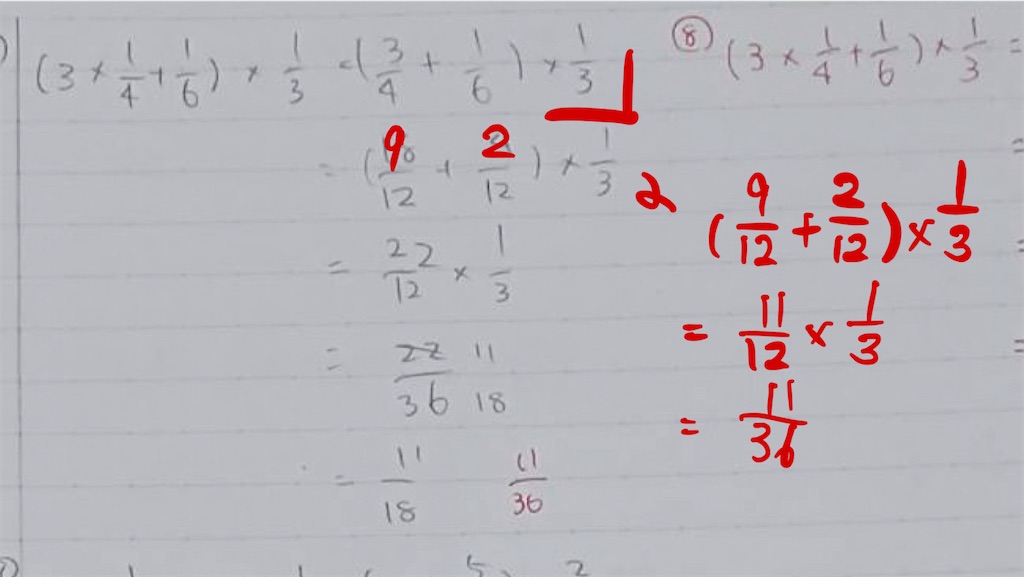 (3 × 1/4 + 1/6) × 1/3 = (3/4 + 1/6) × 1/3
= (9/12 + 2/12) × 1/3
= 22/12 × 1/3
= 22/36 11/18
= 11/18 11/36
⑧ (3 × 1/4 + 1/6) × 1/3 =
=
=
=
2 (9/12 + 2/12) × 1/3
= 11/12 × 1/3
= 11/36